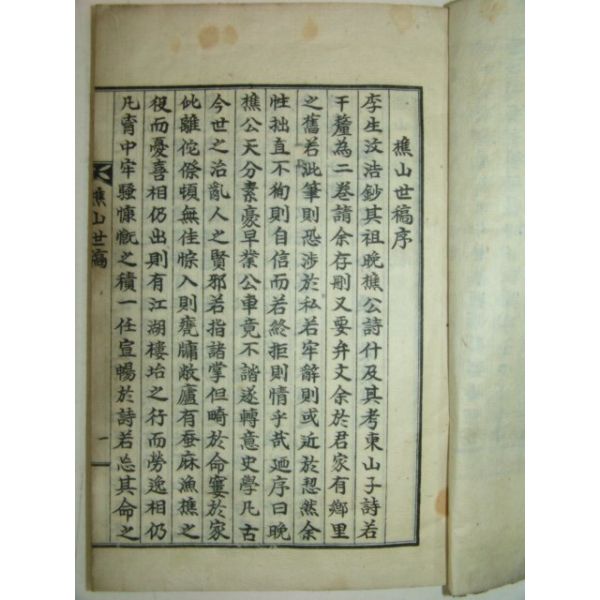 樵山世稿序
李生汶浩鈔其祖晚樵公詩什及其考東山子詩若
干釐為二卷請余存刪又要弁文余於君家有鄉里
之舊若泚筆則恐涉於私若牢辭則或近於恝然余
性拙直不徇則自信而若終拒則情乎哉迺序曰晚
樵公天分素豪早業公車竟不諧遂轉意史學凡古
今世之治亂人之賢邪若指諸掌但畸於命窶於家
仳離侘傺頓無佳悰入則甕牖敝廬有蚕麻漁樵之
役而憂喜相仍出則有江湖樓坮之行而勞逸相仍
凡胷中牢騷慷慨之積一任宣暢於詩若忘其命之
樵山世稿
一